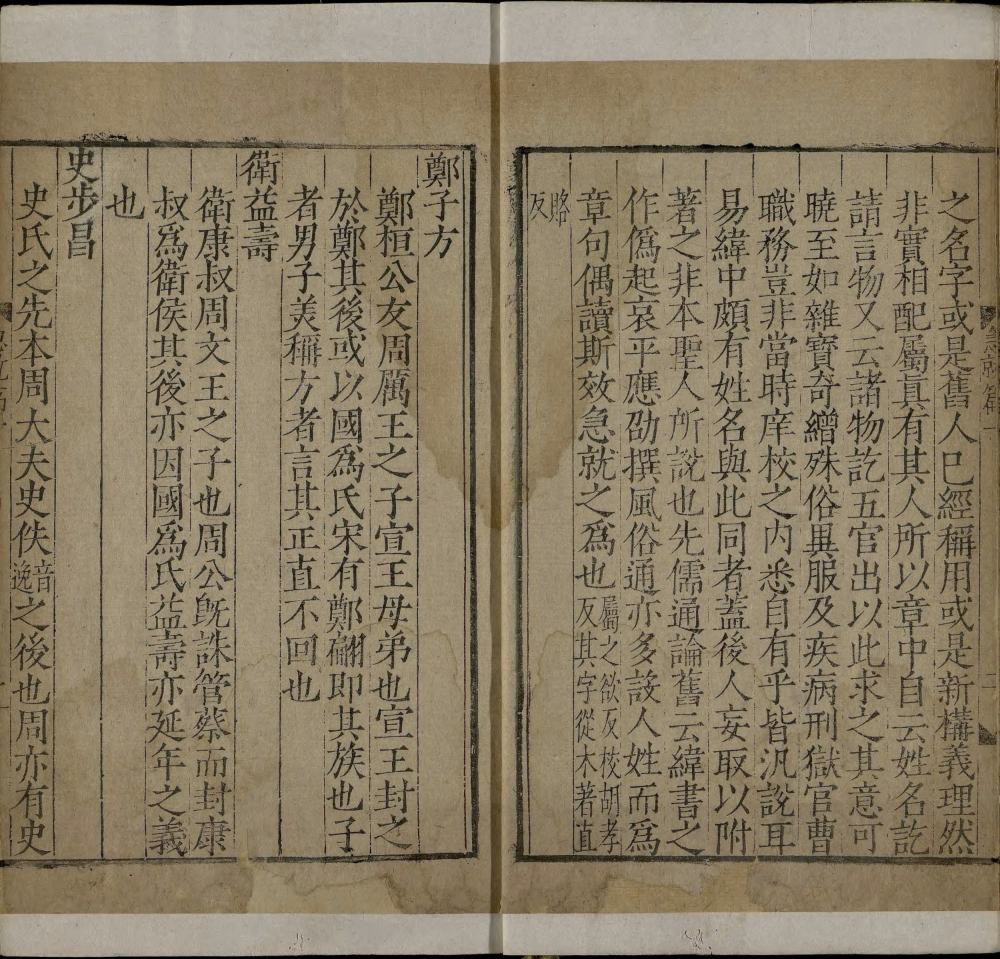 之名字或是舊人已經稱用或是新構義理然
非實相配屬真有其人所以章中自云姓名訖
請言物又云諸物訖五官出以此求之其意可
曉至如雜寶奇繒殊俗異服及疾病刑獄官曹
職務豈非當時庠校之内悉自有乎皆汎說耳
易緯中頗有姓名與此同者蓋後人妄取以附
著之非本聖人所說也先儒通論舊云緯書之
作僞起哀平應劭撰風俗通亦多設人姓而爲
章句偶讀斯效急就之爲也屬之欲反校胡孝反其字從木著直
略反
鄭子方
鄭桓公友周厲王之子宣王母弟也宣王封之
於鄭其後或以國爲氏宋有鄭翩即其族也子
者男子美稱方者言其正直不回也
衛益壽
衛康叔周文王之子也周公旣誅管蔡而封康
叔爲衛侯其後亦因國爲氏益壽亦延年之義
也
史步昌
史氏之先本周大夫史佚音逸之後也周亦有史